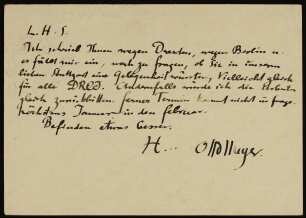 L. H. S.
Ich schrieb Ihnen wegen Dresden, wegen Berlin u.
es fällt mir ein, noch zu fragen, ob Sie in unserm
lieben Stuttgart eine Gelegenheit wüssten, Vielleicht gleich
für alle DREI. Andernfalls würde ich die
gleich zurückbitten. ferner Termin kommt nicht in frage
höchstens Januar in den februar.
Befinden etwas besser.
H... Otto Meyer.